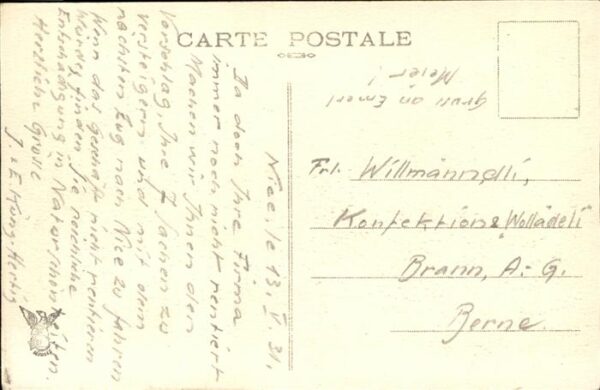 CARTE POSTALE
Nice. le 13. V. 31.
Da doch Ihre Firma
immer noch nicht rentiert
Machen wir Ihnen den
Vorschlag, Ihre 7 Sachen zu
versteigern und mit dem
nächsten Zug nach Nice zu fahren
Wenn das Geschäft nicht rentieren
würde, finden Sie reichliche
Entschädigung in Naturschönheiten.
Herzliche Grüsse
Gruss an Emerl
Meier!
Frl. Willmänndli,
Konfektion & "Wollädeli"
Brann, A.-G.
Berne.